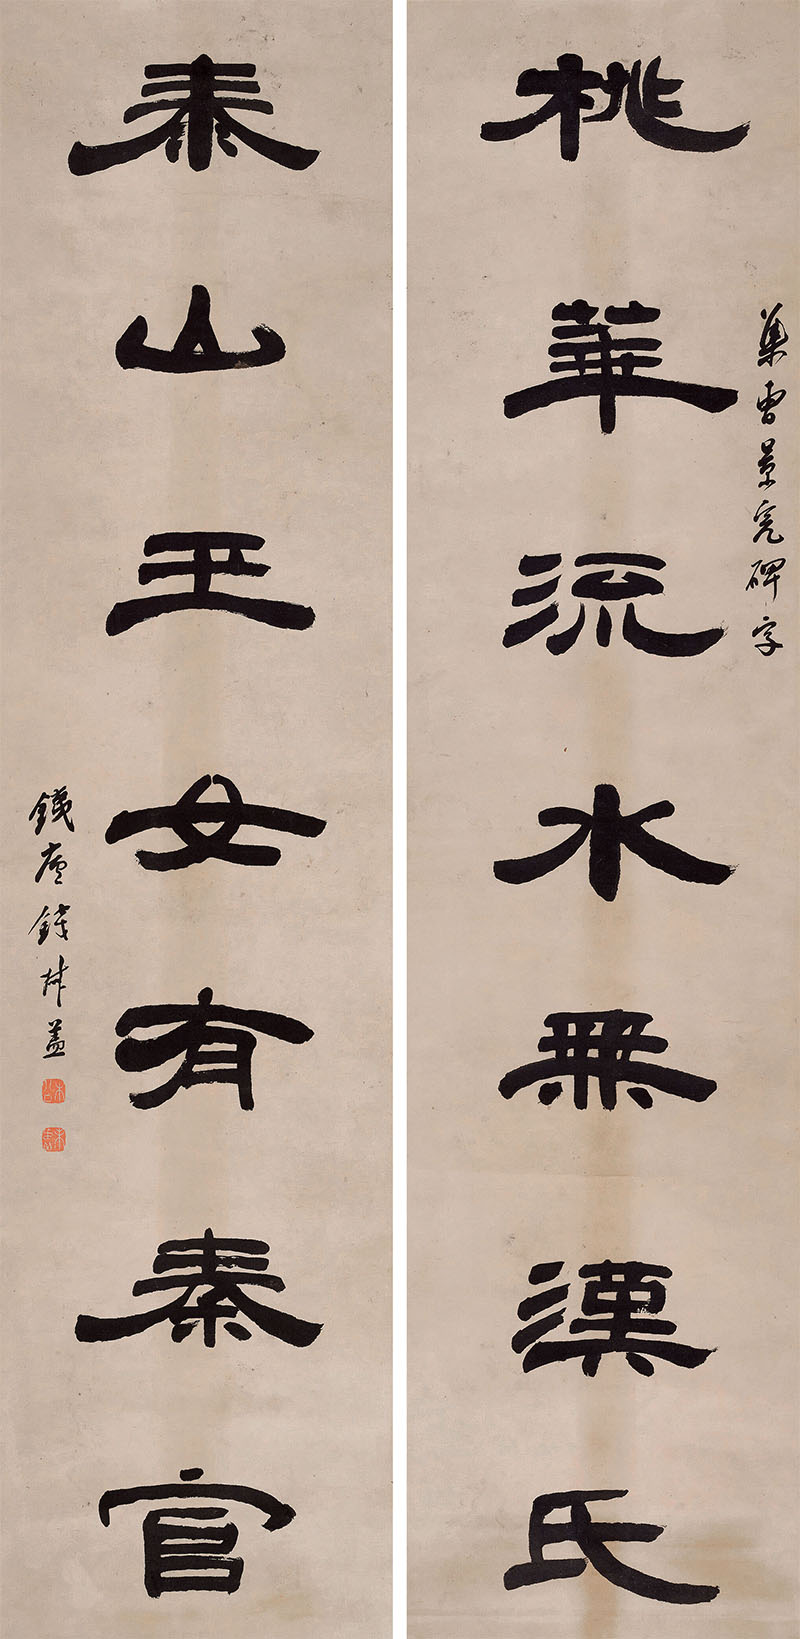 集曹景完碑字
桃華流水無漢氏
泰山玉女有秦官
鐵廬錢叔蓋